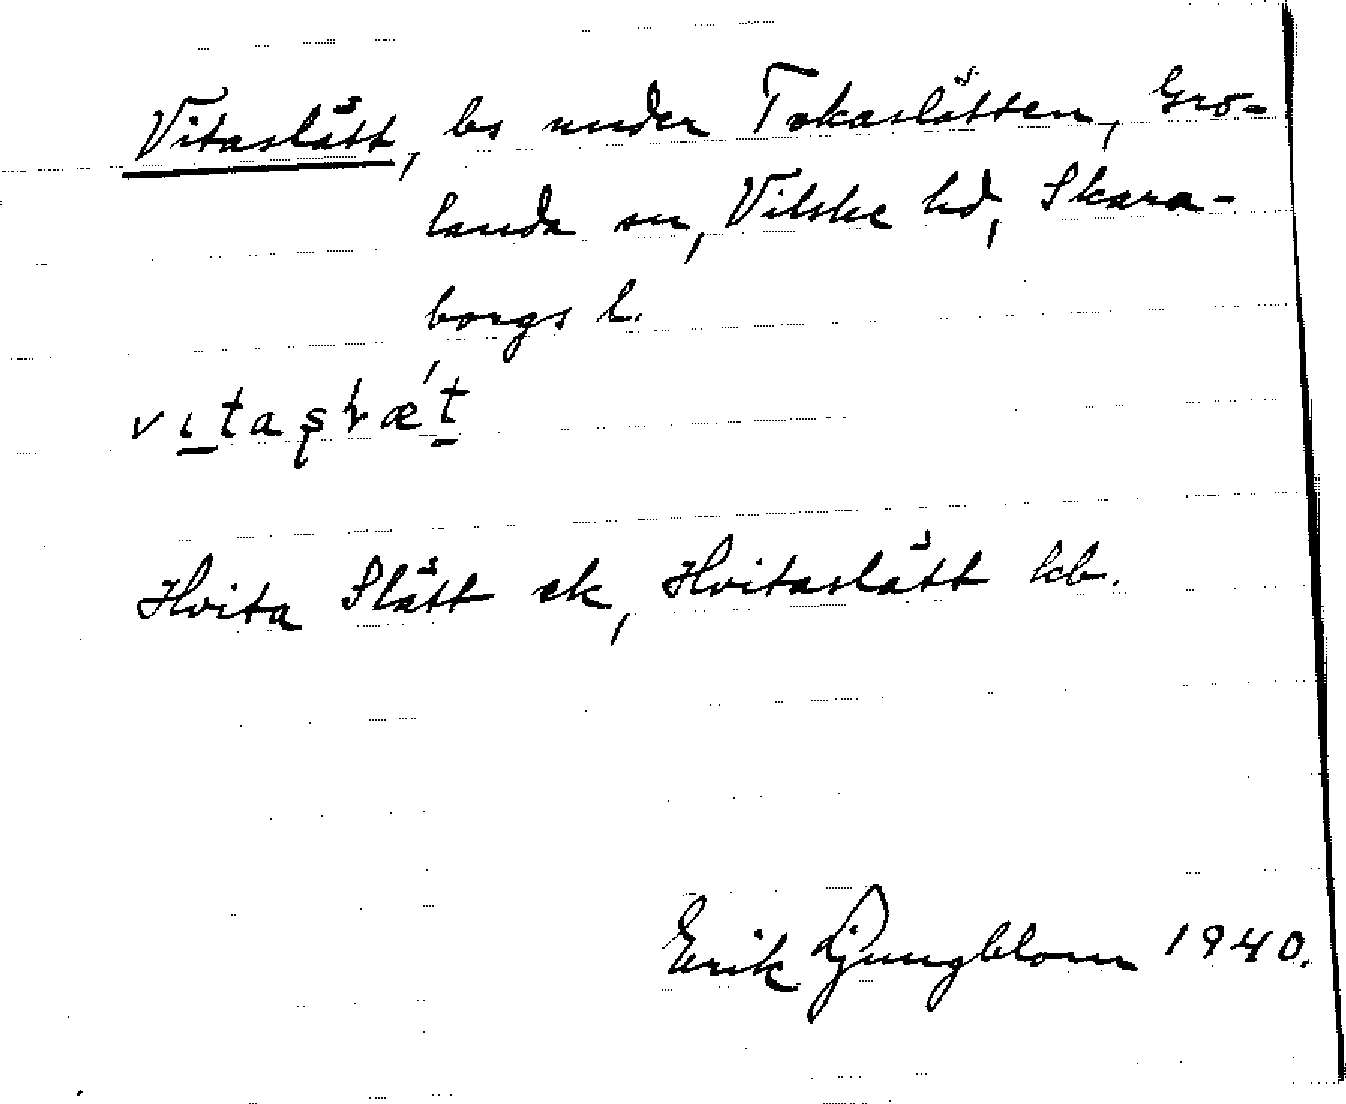 Vitaslått, bs under Tokaslåtten, Gro-
landa sn, Vilske hd, Skara-
borgs l.
Hvita Slått ek, Hvitaslått kb.
Erik Ljungblom 1940.